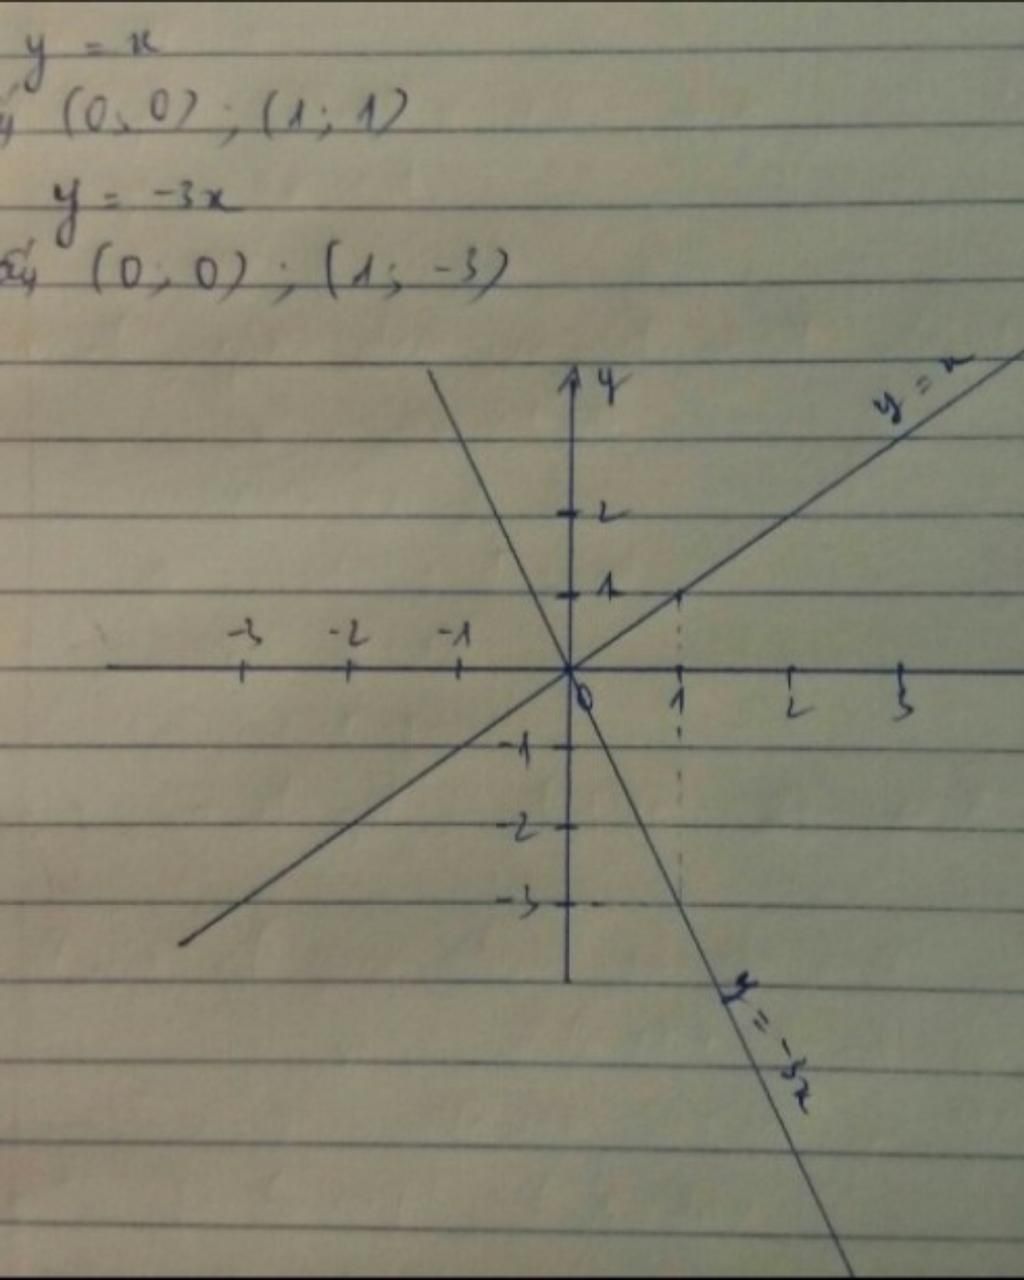 y = x
(0; 0) ; (1; 1)
y = -3x
(0; 0) ; (1; -3)
y
y = x
2
1
-3 -2 -1
0 1 2 3
-1
-2
-3
y = -3x